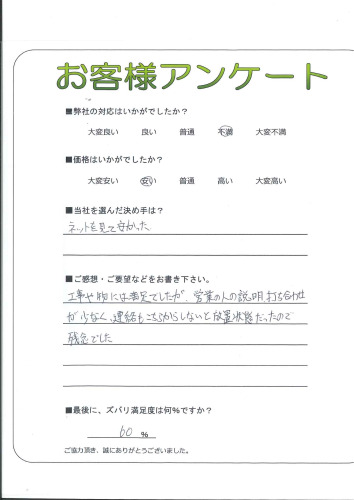 お客様アンケート
■弊社の対応はいかがでしたか？
大変良い 良い 普通 不満 大変不満
■価格はいかがでしたか？
大変安い 安い 普通 高い 大変高い
■当社を選んだ決め手は？
ネットを見て安かった
■ご感想・ご要望などをお書き下さい。
工事や物には満足でしたが、営業の人の説明打ち合わせ
が少なく、連絡もこちらからしないと放置状態だったので
残念でした
■最後に、ズバリ満足度は何%ですか？
60 %
ご協力頂き、誠にありがとうございました。